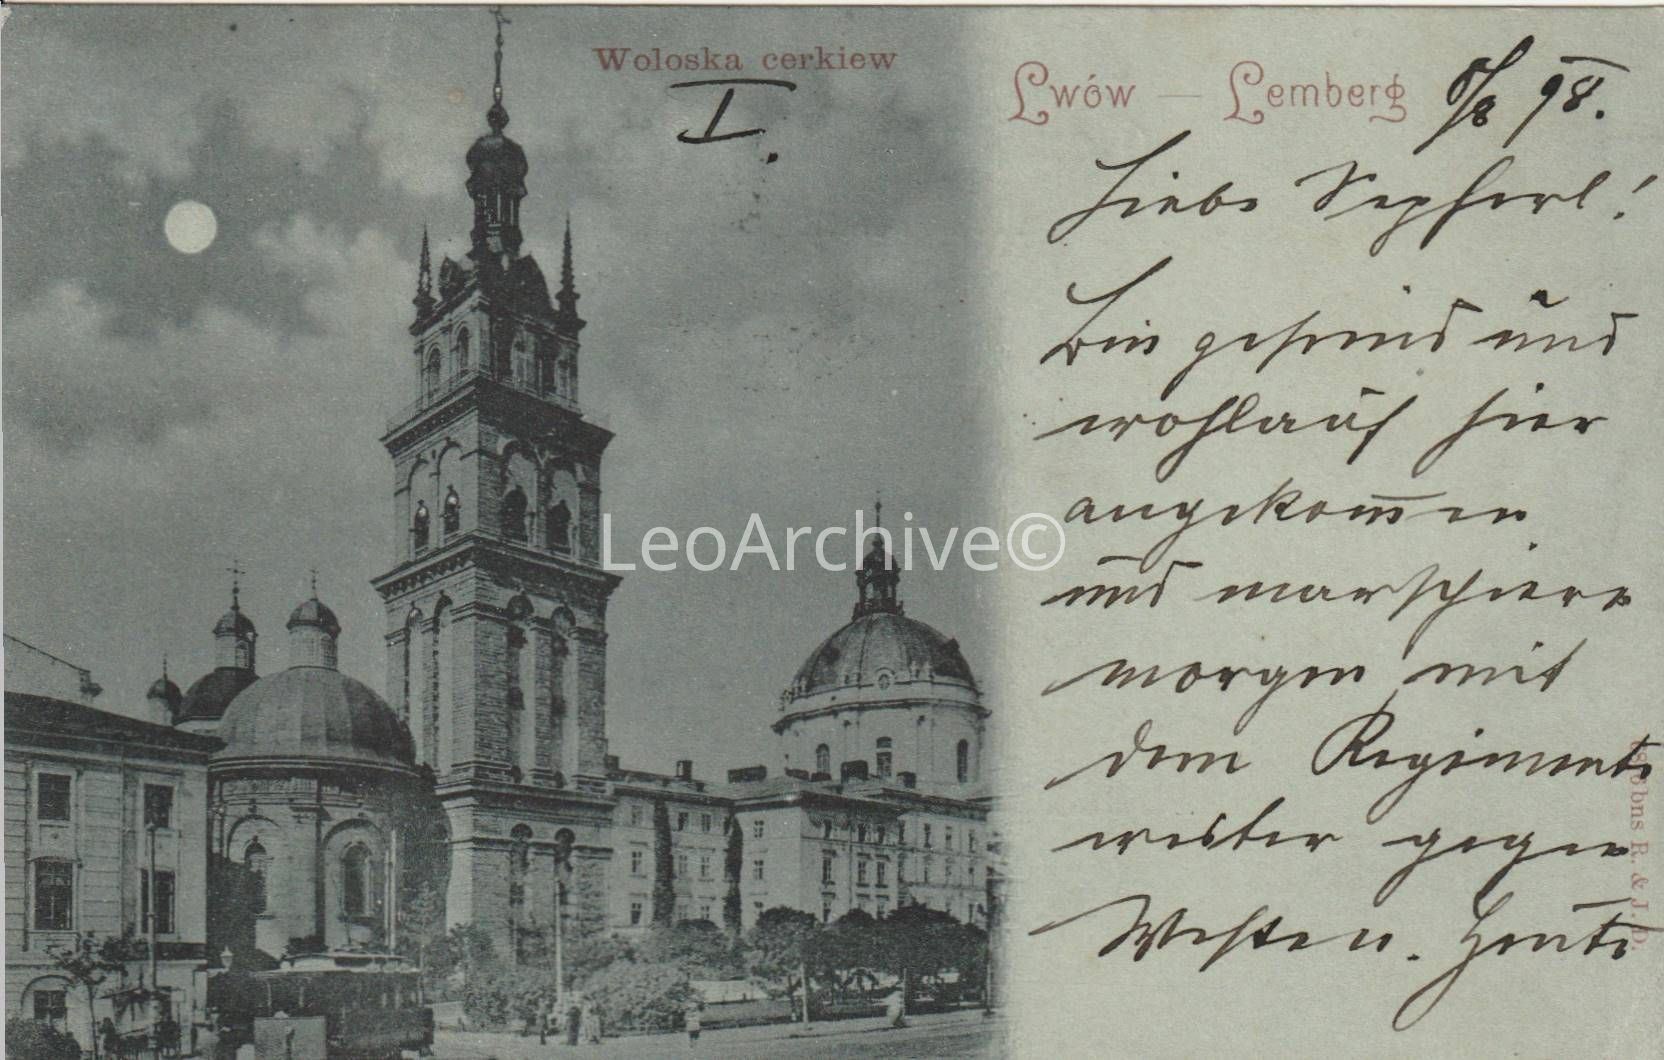 Woloska cerkiew
I.
Lwów — Lemberg 8/8 98.
Liebe Sepherl!
Bin gesund und
wohlauf hier
angekom̅en
und marschiere
morgen mit
dem Regimente
weiter gegen
Westen. Heute
LeoArchive©
R. & J. D.